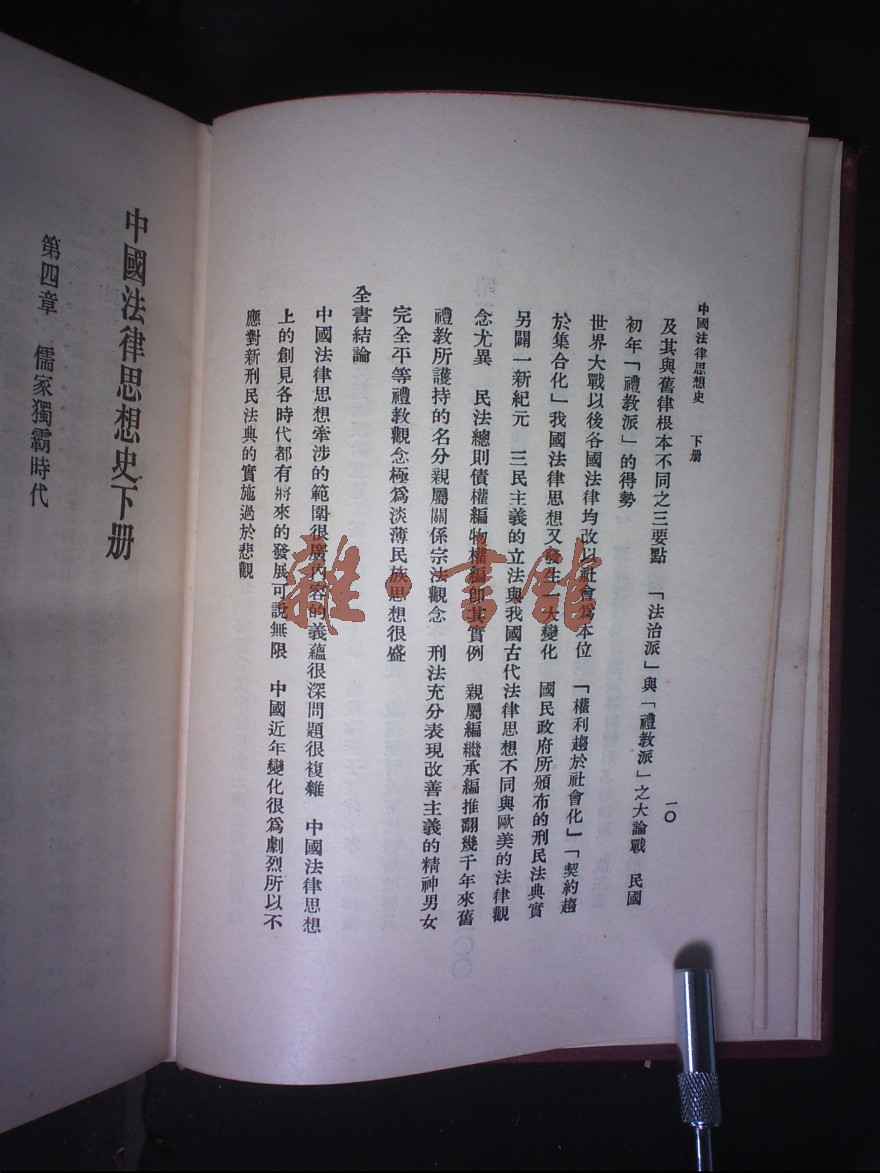 中國法律思想史　下册
一〇
及其與舊律根本不同之三要點　「法治派」與「禮教派」之大論戰　民國
初年「禮教派」的得勢
世界大戰以後各國法律均改以社會爲本位　「權利趨於社會化」「契約趨
於集合化」我國法律思想又發生一大變化　國民政府所頒布的刑民法典實
另闢一新紀元　三民主義的立法與我國古代法律思想不同與歐美的法律觀
念尤異　民法總則債權編物權編卽其實例　親屬編繼承編推翻幾千年來舊
禮教所護持的名分親屬關係宗法觀念　刑法充分表現改善主義的精神男女
完全平等禮教觀念極爲淡薄民族思想很盛
全書結論
中國法律思想牽涉的範圍很廣內容的義蘊很深問題很複雜　中國法律思想
上的創見各時代都有將來的發展可說無限　中國近年變化很爲劇烈所以不
應對新刑民法典的實施過於悲觀
中國法律思想史下册
第四章　儒家獨霸時代
雜·書館